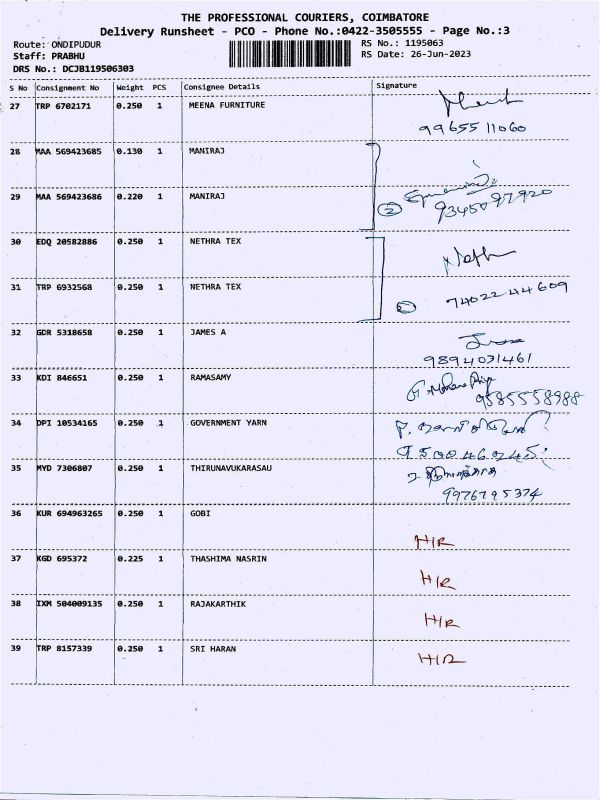 THE PROFESSIONAL COURIERS, COIMBATORE
Delivery Runsheet - PCO - Phone No.:0422-3505555 - Page No.:3
Route: ONDIPUDUR RS No.: 1195063
Staff: PRABHU RS Date: 26-Jun-2023
DRS No.: DCJB119506303
S No Consignment No Weight PCS Consignee Details Signature
27 TRP 6702171 0.250 1 MEENA FURNITURE
9965511060
28 MAA 569423685 0.130 1 MANIRAJ
29 MAA 569423686 0.220 1 MANIRAJ
2 9345097920
30 EDQ 20582886 0.250 1 NETHRA TEX
31 TRP 6932568 0.250 1 NETHRA TEX
74022 44609
32 GDR 5318658 0.250 1 JAMES A
9894031461
33 KDI 846651 0.250 1 RAMASAMY
9585558988
34 DPI 10534165 0.250 1 GOVERNMENT YARN
35 MYD 7306807 0.250 1 THIRUNAVUKARASAU
9976795374
36 KUR 694963265 0.250 1 GOBI
H/R
37 KGD 695372 0.225 1 THASHIMA NASRIN
H/R
38 IXM 504009135 0.250 1 RAJAKARTHIK
H/R
39 TRP 8157339 0.250 1 SRI HARAN
H/R